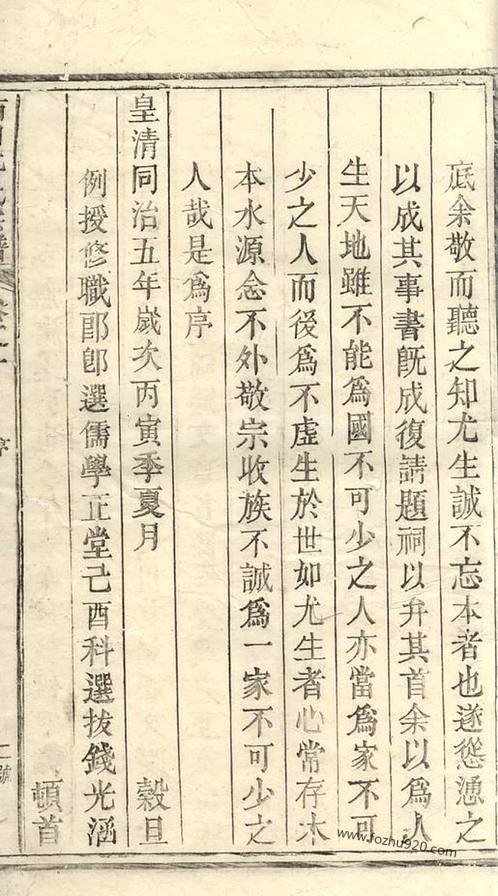 底余敬而聽之知尤生誠不忘本者也遂慫慂之
以成其事書既成復請題祠以弁其首余以爲人
生天地雖不能爲國不可少之人亦當爲家不可
少之人而後爲不虛生於世如尤生者心常存木
本水源念不外敬宗收族不誠爲一家不可少之
人哉是爲序
皇清同治五年歲次丙寅季夏月 穀旦
例授修職郎卽選儒學正堂己酉科選拔錢光涵
頓首
序
www.fozhu920.com